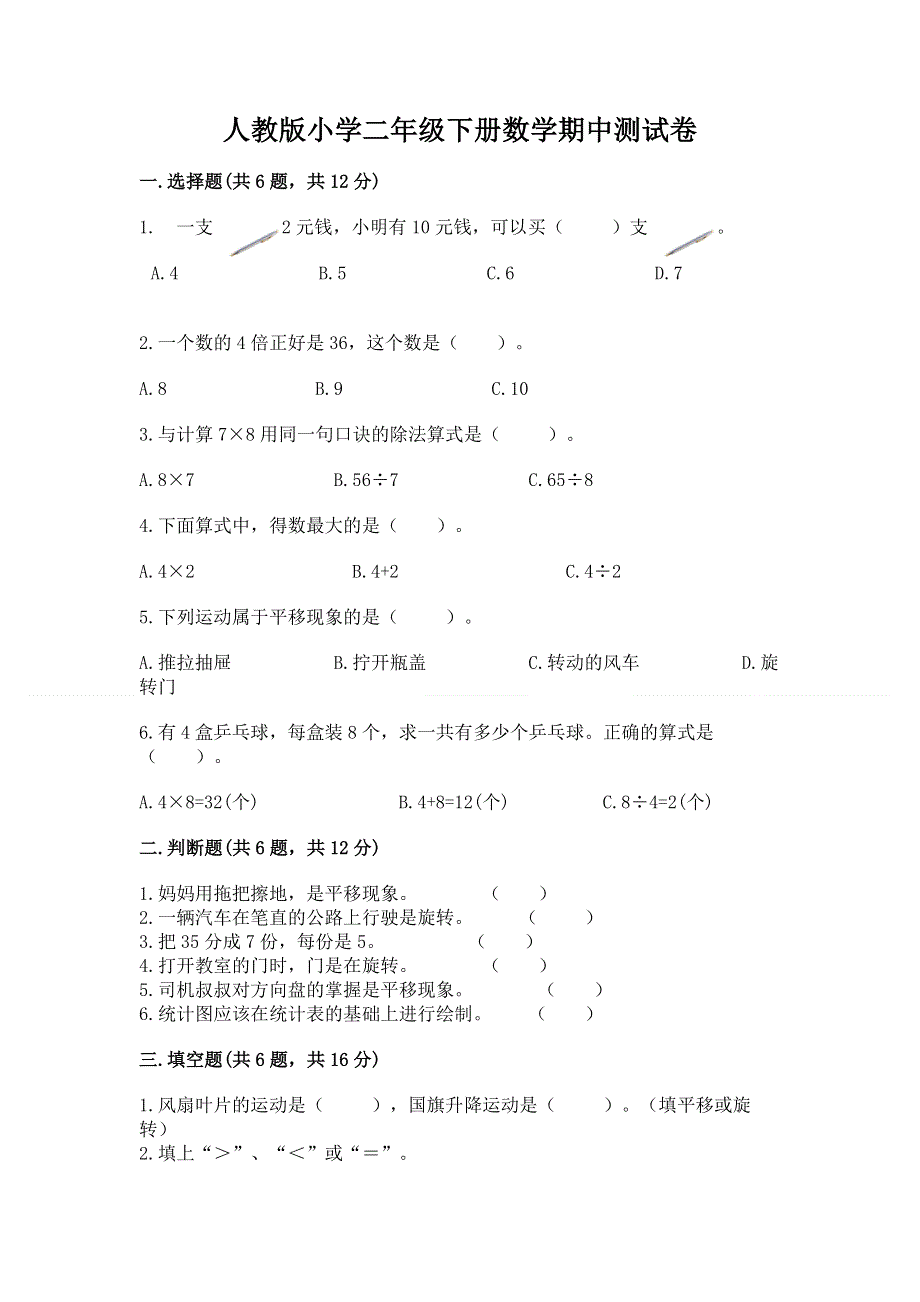 人教版小学二年级下册数学期中测试卷
一.选择题(共6题，共12分)
1. 一支 2元钱，小明有10元钱，可以买（ ）支 。
A.4 B.5 C.6 D.7
2.一个数的4倍正好是36，这个数是（ ）。
A.8 B.9 C.10
3.与计算7×8用同一句口诀的除法算式是（ ）。
A.8×7 B.56÷7 C.65÷8
4.下面算式中，得数最大的是（ ）。
A.4×2 B.4+2 C.4÷2
5.下列运动属于平移现象的是（ ）。
A.推拉抽屉 B.拧开瓶盖 C.转动的风车 D.旋
转门
6.有4盒乒乓球，每盒装8个，求一共有多少个乒乓球。正确的算式是
（ ）。
A.4×8=32(个) B.4+8=12(个) C.8÷4=2(个)
二.判断题(共6题，共12分)
1.妈妈用拖把擦地，是平移现象。 （ ）
2.一辆汽车在笔直的公路上行驶是旋转。 （ ）
3.把35分成7份，每份是5。 （ ）
4.打开教室的门时，门是在旋转。 （ ）
5.司机叔叔对方向盘的掌握是平移现象。 （ ）
6.统计图应该在统计表的基础上进行绘制。 （ ）
三.填空题(共6题，共16分)
1.风扇叶片的运动是（ ），国旗升降运动是（ ）。（填平移或旋
转）
2.填上“＞”、“＜”或“＝”。